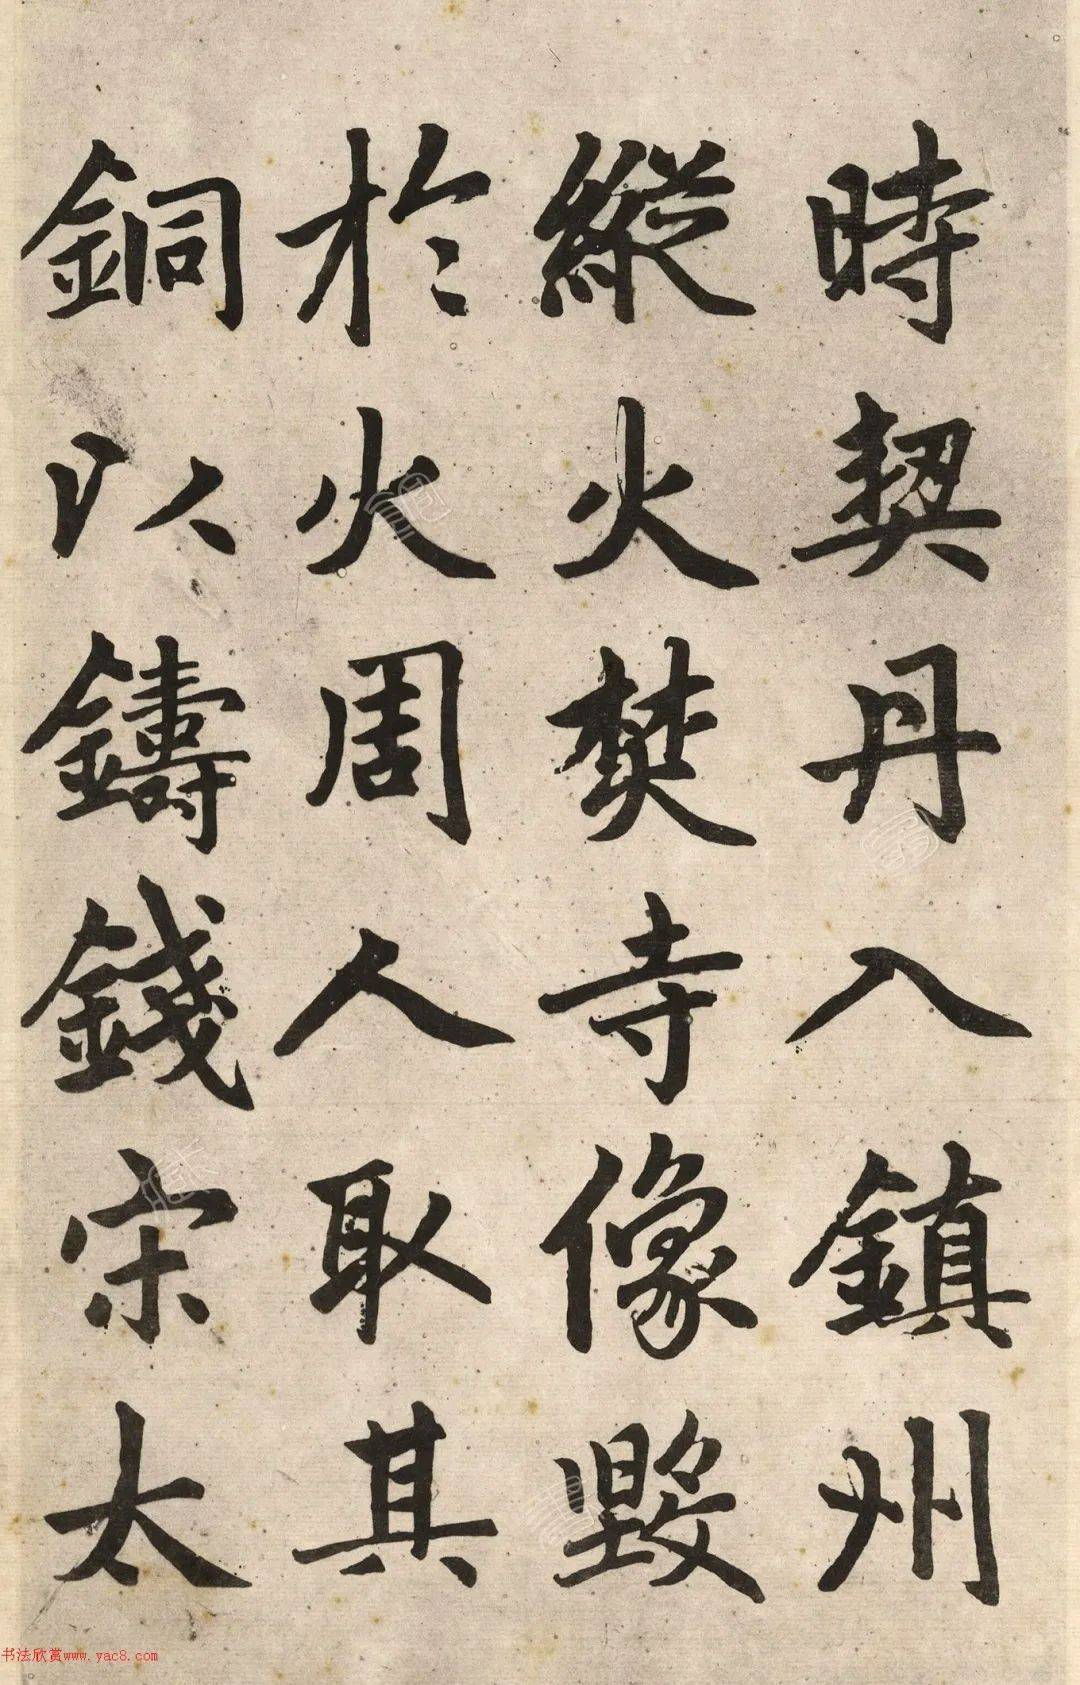 時契丹入鎮州
縱火焚寺像毀
於火周人取其
銅以鑄錢宋太
书法欣赏www.yac8.com